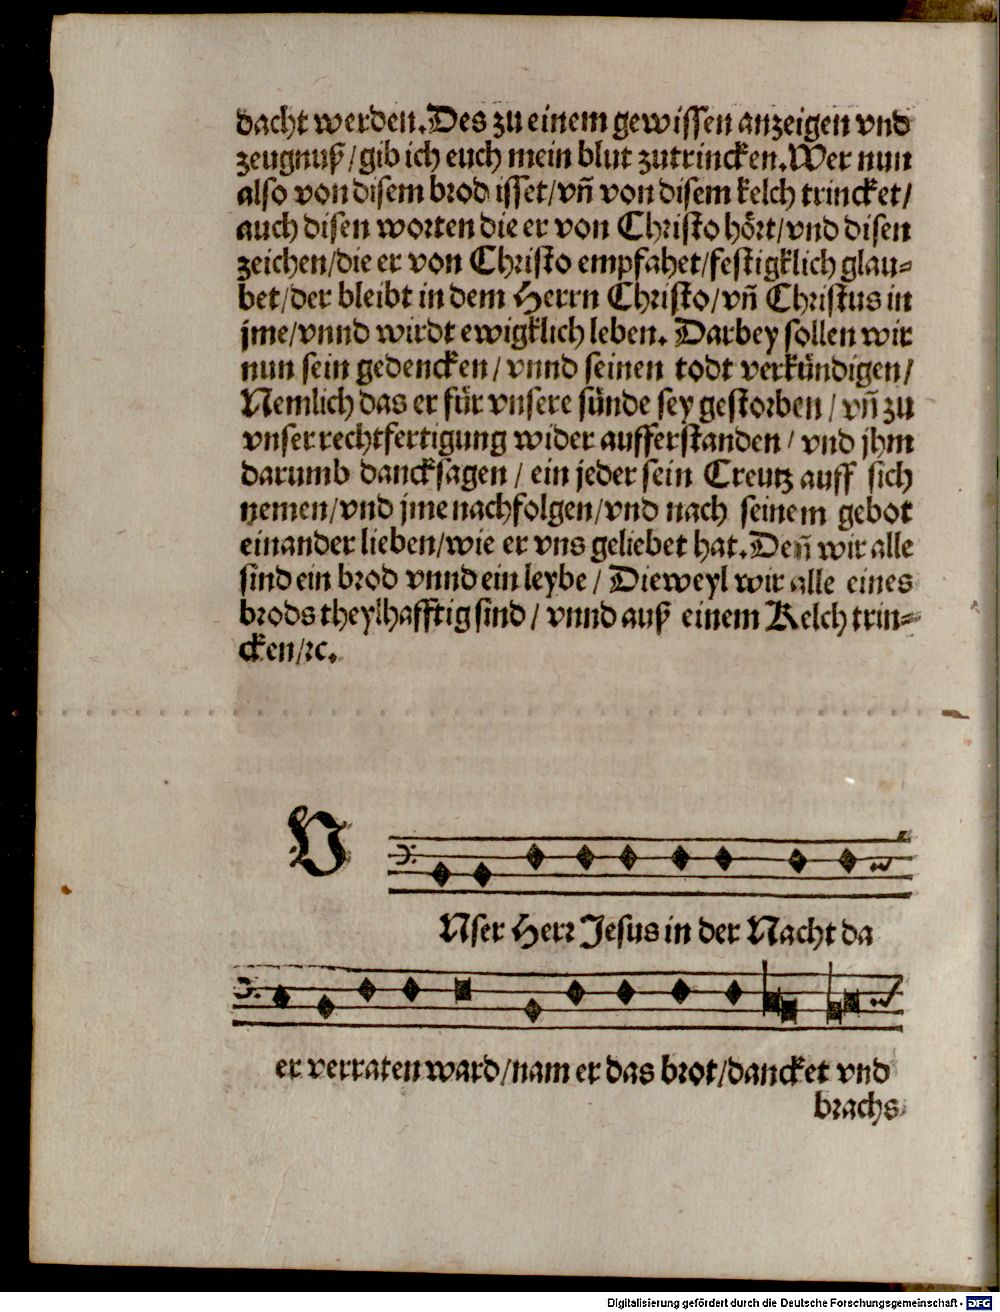 dacht werden. Des zu einem gewissen anzeigen vnd
zeugnuß/gib ich euch mein blut zutrincken. Wer nun
also von disem brod isset/vñ von disem kelch trincket/
auch disen worten die er von Christo hört/vnd disen
zeichen/die er von Christo empfahet/festigklich glau=
bet/der bleibt in dem Herrn Christo/vñ Christus in
jme/vnnd wirdt ewigklich leben. Darbey sollen wir
nun sein gedencken/vnnd seinen todt verkündigen/
Nemlich das er für vnsere sünde sey gestorben/vñ zu
vnser rechtfertigung wider aufferstanden/vnd jhm
darumb dancksagen/ein jeder sein Creutz auff sich
nemen/vnd jme nachfolgen/vnd nach seinem gebot
einander lieben/wie er vns geliebet hat. Deñ wir alle
sind ein brod vnnd ein leybe/Dieweyl wir alle eines
brods theylhafftig sind/vnnd auß einem Kelch trin=
cken/ꝛc.
V
Nser Herr Jesus in der Nacht da
er verraten ward/nam er das brot/dancket vnd
brachs
Digitalisierung gefördert durch die Deutsche Forschungsgemeinschaft - DFG